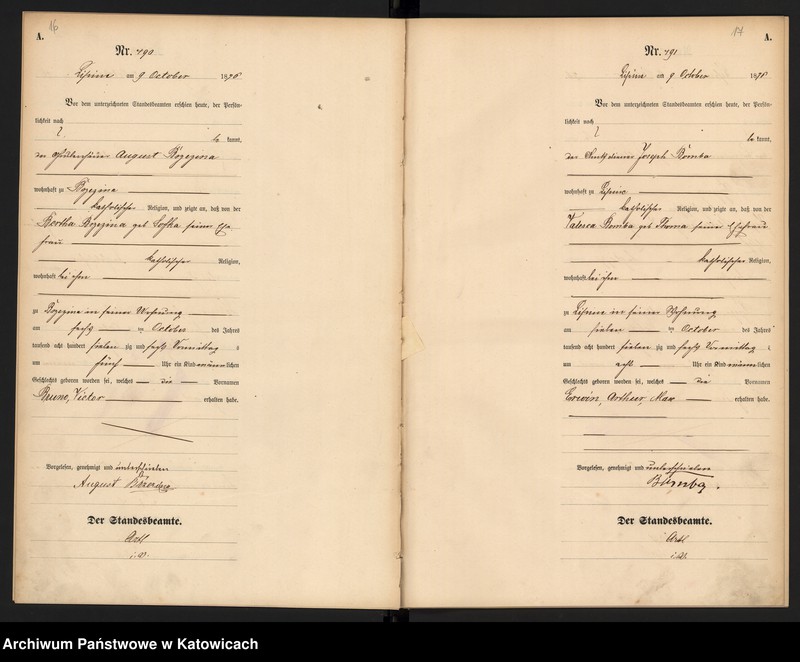 16
A.
Nr. 790
Lipine am 9 October 1876
Vor dem unterzeichneten Standesbeamten erschien heute, der Persön-
lichkeit nach
be kannt,
der August Brzezina
wohnhaft zu Brzezina
katholischer Religion, und zeigte an, daß von der
Bertha Brzezina geb Sofka seiner Ehe
frau
katholischer Religion,
wohnhaft bei ihm
zu Brzezina in seiner Wohnung
am sechs ten October des Jahres
tausend acht hundert sieben zig und sechs Vormittag s
um fünf Uhr ein Kind männ lichen
Geschlechts geboren worden sei, welches die Vornamen
Bruno, Victor erhalten habe.
Vorgelesen, genehmigt und unterschrieben
August
Der Standesbeamte.
i.V.
17
A.
Nr. 791
Lipine am 9 October 1876
Vor dem unterzeichneten Standesbeamten erschien heute, der Persön-
lichkeit nach
be kannt,
der Amtsdiener Joseph Bomba
wohnhaft zu Lipine
katholischer Religion, und zeigte an, daß von der
Valesca Bomba geb Thoma seiner Ehefrau
katholischer Religion,
wohnhaft bei ihm
zu Lipine in seiner Wohnung
am sieben ten October des Jahres
tausend acht hundert sieben zig und sechs Vormittag s
um acht Uhr ein Kind männ lichen
Geschlechts geboren worden sei, welches die Vornamen
Erwin, Arthur, Max erhalten habe.
Vorgelesen, genehmigt und unterschrieben
Bomba.
Der Standesbeamte.
i.V.
Archiwum Państwowe w Katowicach